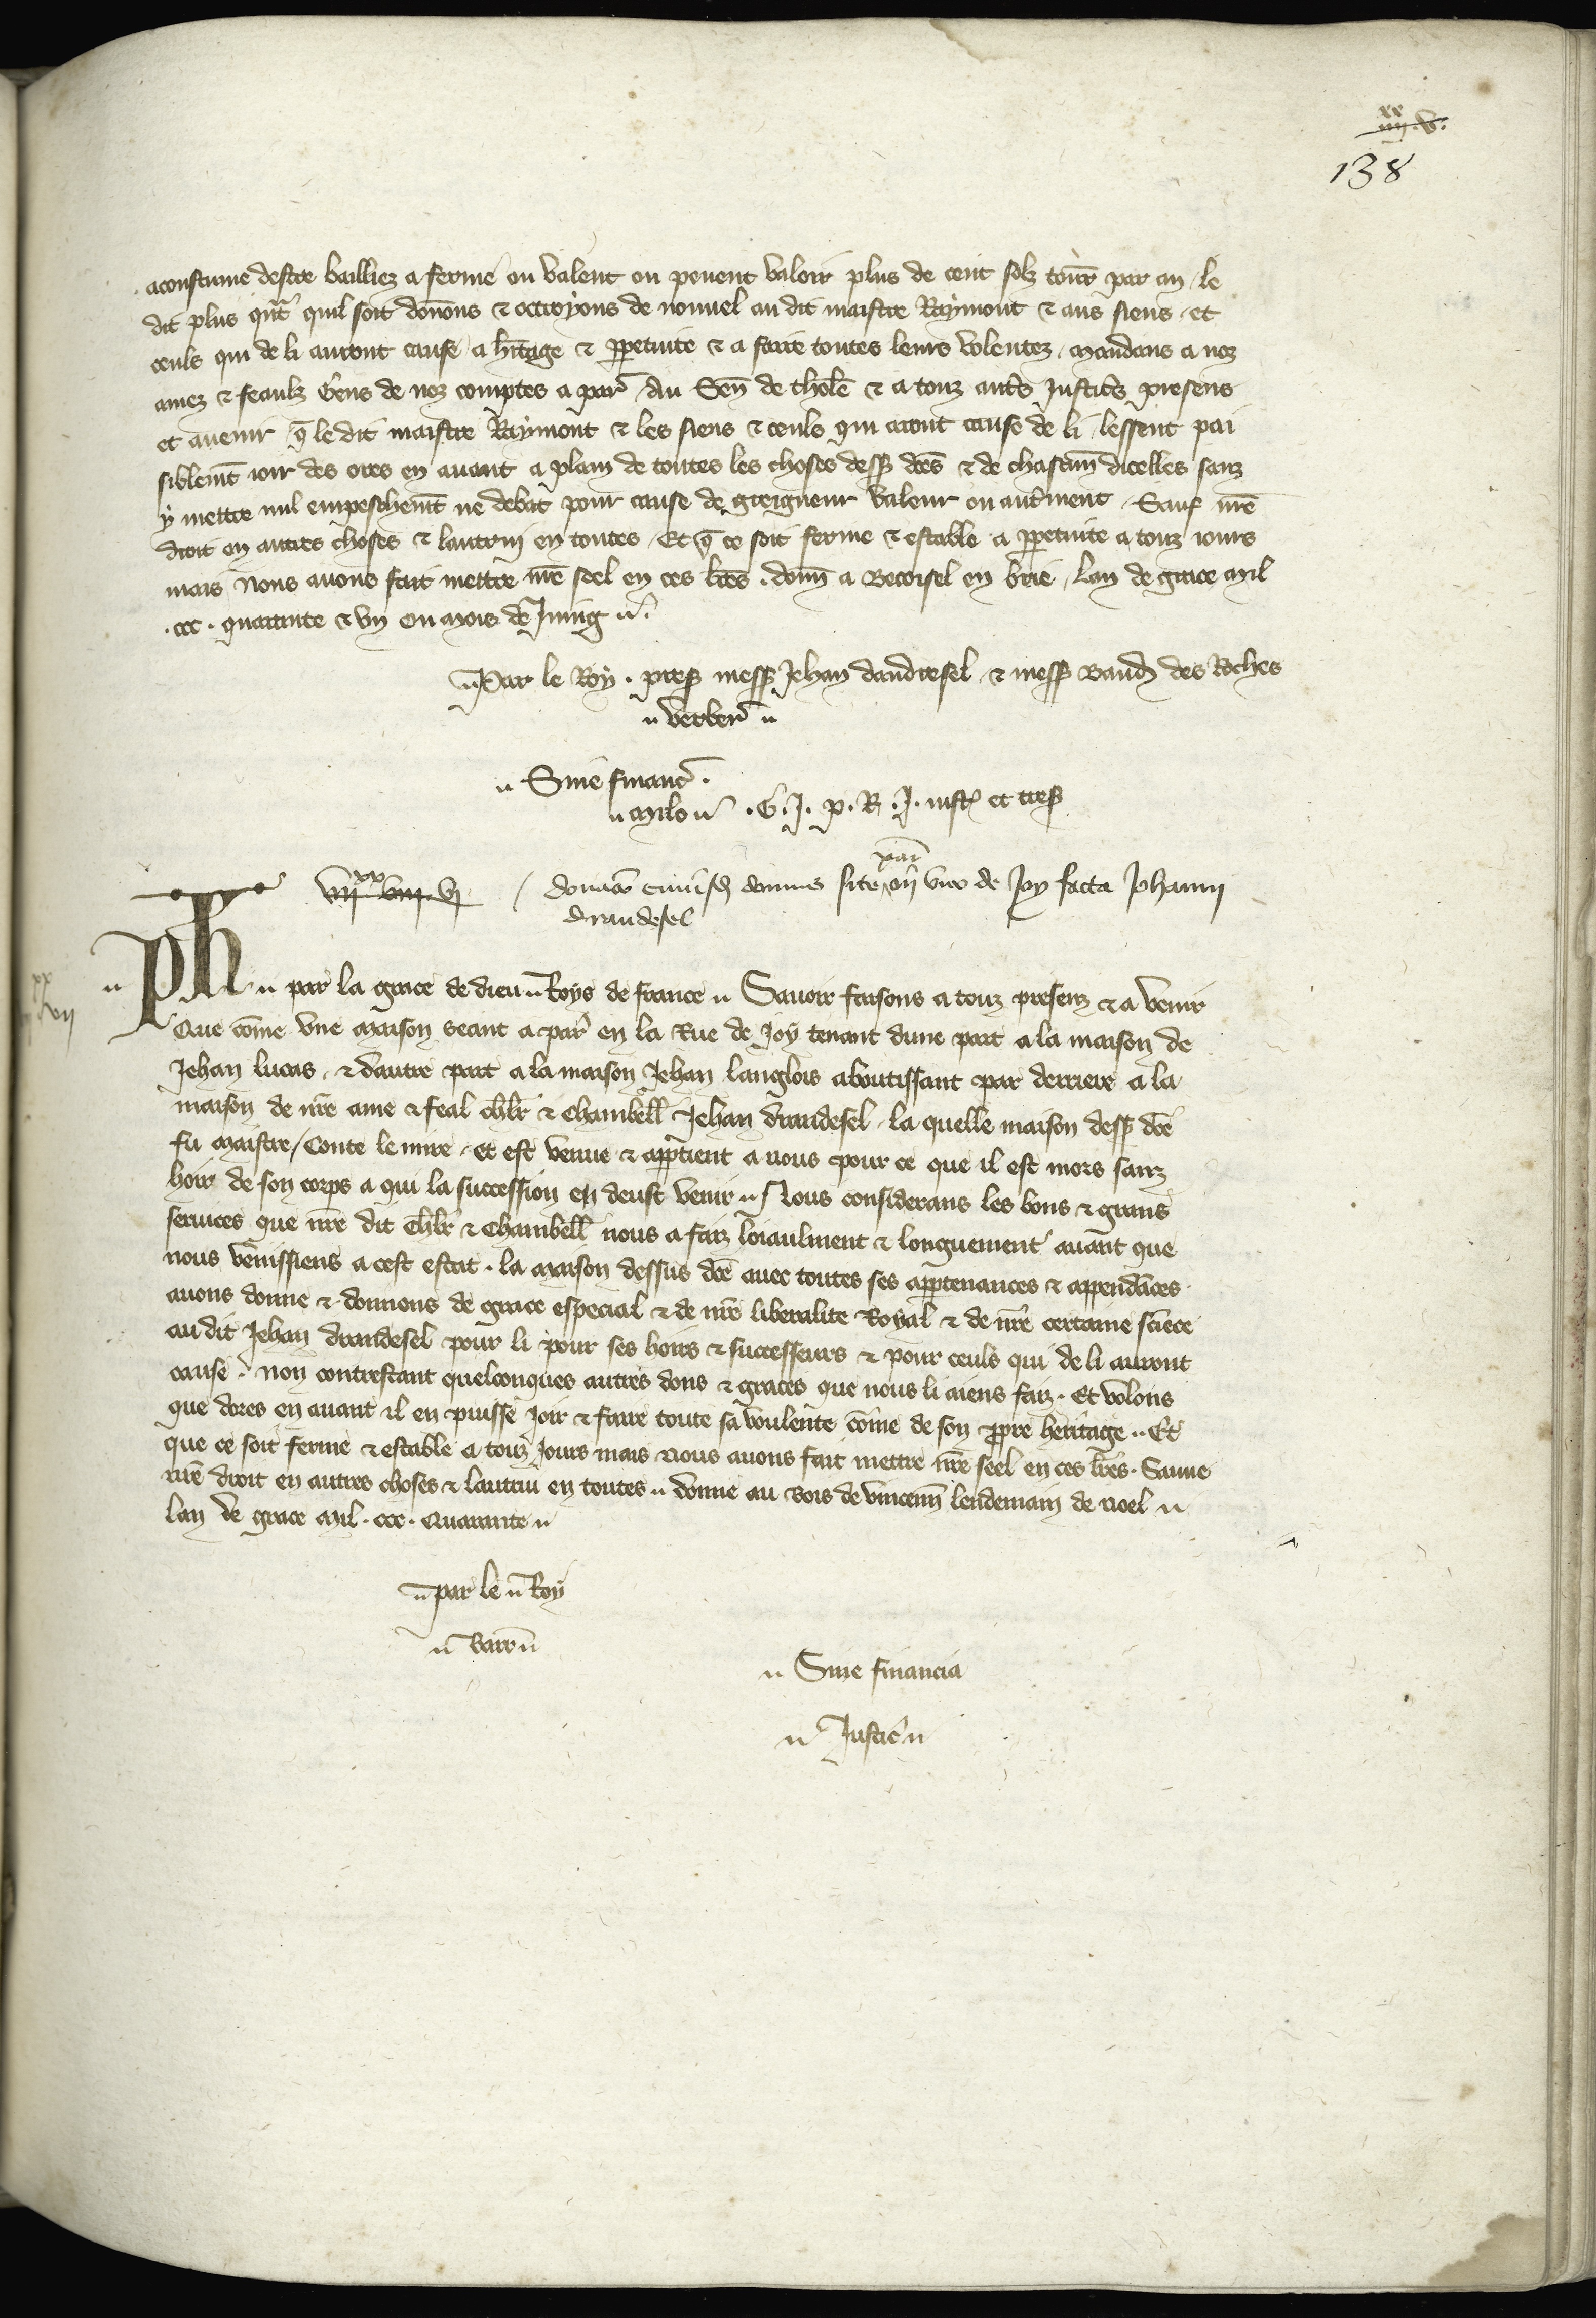 xx
iiii.v.
138
acoustume destre bailliez a ferme ou valent ou peuent valoir plus de cent solz tourn par an, le
dit plus quant quil soit donons & octroyons de nouuel au dit maistre Raymont & aus siens et
ceuls qui de li auront cause a heritage & perpetuite & a faire toutes leurs volentez, Mandans a noz
amez & feaulz Gens de noz comptes a par, Au Sen de Thole & a touz autres Justices presens
et auenir q le dit maistre Raymont & les siens & ceuls qui aront cause de li lessent pai
siblemt ioir des ores en auant a plain de toutes les choses dess dces & de chascun dicelles sanz
y mettre nul empeschemt ne debat pour cause de greigneur valeur ou autrment. Sauf nre
droit en autres choses & lautrui en toutes. Et q ce soit ferme & estable a perpetuite a touz iours
mais Nous auons fait mettre nre seel en ces lres. donn a Becoisel en brie, Lan de grace Mil
.ccc. quarante & vn ou Mois de Juing
Par le Roy. pres mess Jehan dandresel & mess Baud des Roches
verber
Sine financ.
Milo .G.J. p.R.J. iust et tres
vii viii vi / donaco eiusd domus site par in vico de Joy facta Johanni
drandesel
xx
vii
Ph par la grace de dieu Roys de france Sauoir faisons a touz presenz & a venir
Que come vne Maison seant a par en la Rue de Joy tenant dune part a la maison de
Jehan lucas, & dautre part a la maison Jehan langlois aboutissant par derriere a la
maison de nre ame & feal chlr & Chambell Jehan drandesel, la quelle maison dess dce
fu Maistre Conte le mire, et est venue & appartient a nous pour ce que il est mors sanz
hoir de son corps a qui la succession en deust venir Nous considerans les bons & grans
seruices que nre dit Chlr & Chambell nous a faiz loiaulment & longuement auant que
nous venissiens a cest estat. la Maison dessus dce auec toutes ses appartenances & appendances
auons donne & donnons de grace especial & de nre liberalite Royal & de nre certaine science
au dit Jehan drandesel pour li pour ses hoirs & successeurs & pour ceuls qui de li auront
cause. Non contrestant quelconques autres dons & graces que nous li aiens faiz. Et volons
que dores en auant il en puisse Joir & faire toute sa voulente come de son propre heritage. Et
que ce soit ferme & estable a touz Jours mais Nous auons fait mettre nre seel en ces lres. Sauue
nre droit en autres choses & lautrui en toutes donne au Bois de vincenn lendemain de Noel
Lan de grace Mil. ccc. Quarante
par le Roy
Barr
Sine financia
Justic